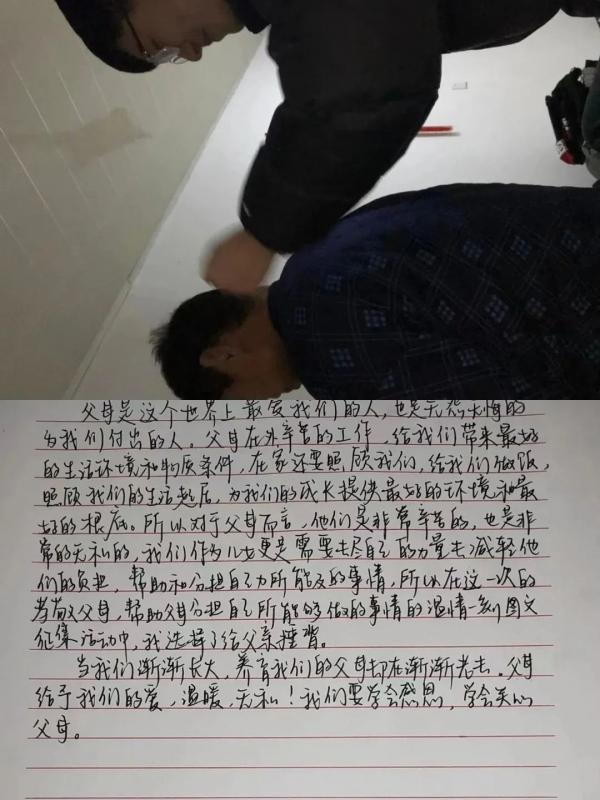 父母是这个世界上最爱我们的人，也是无怨无悔的
为我们付出的人。父母在外辛苦的工作，给我们带来最好
的生活环境和物质条件，在家还要照顾我们，给我们做饭，
照顾我们的生活起居，为我们的成长提供最好的环境和最
好的根底。所以对于父母而言，他们是非常辛苦的，也是非
常的无私的，我们作为儿女更是需要去尽自己的力量去减轻他
们的负担，帮助和分担自己力所能及的事情，所以在这一次的
孝敬父母，帮助父母分担自己所能够做的事情的温情一刻图文
征集活动中，我选择了给父亲捶背。
当我们渐渐长大，养育我们的父母却在渐渐老去。父母
给予我们的爱，温暖，无私！我们要学会感恩，学会关心
父母。